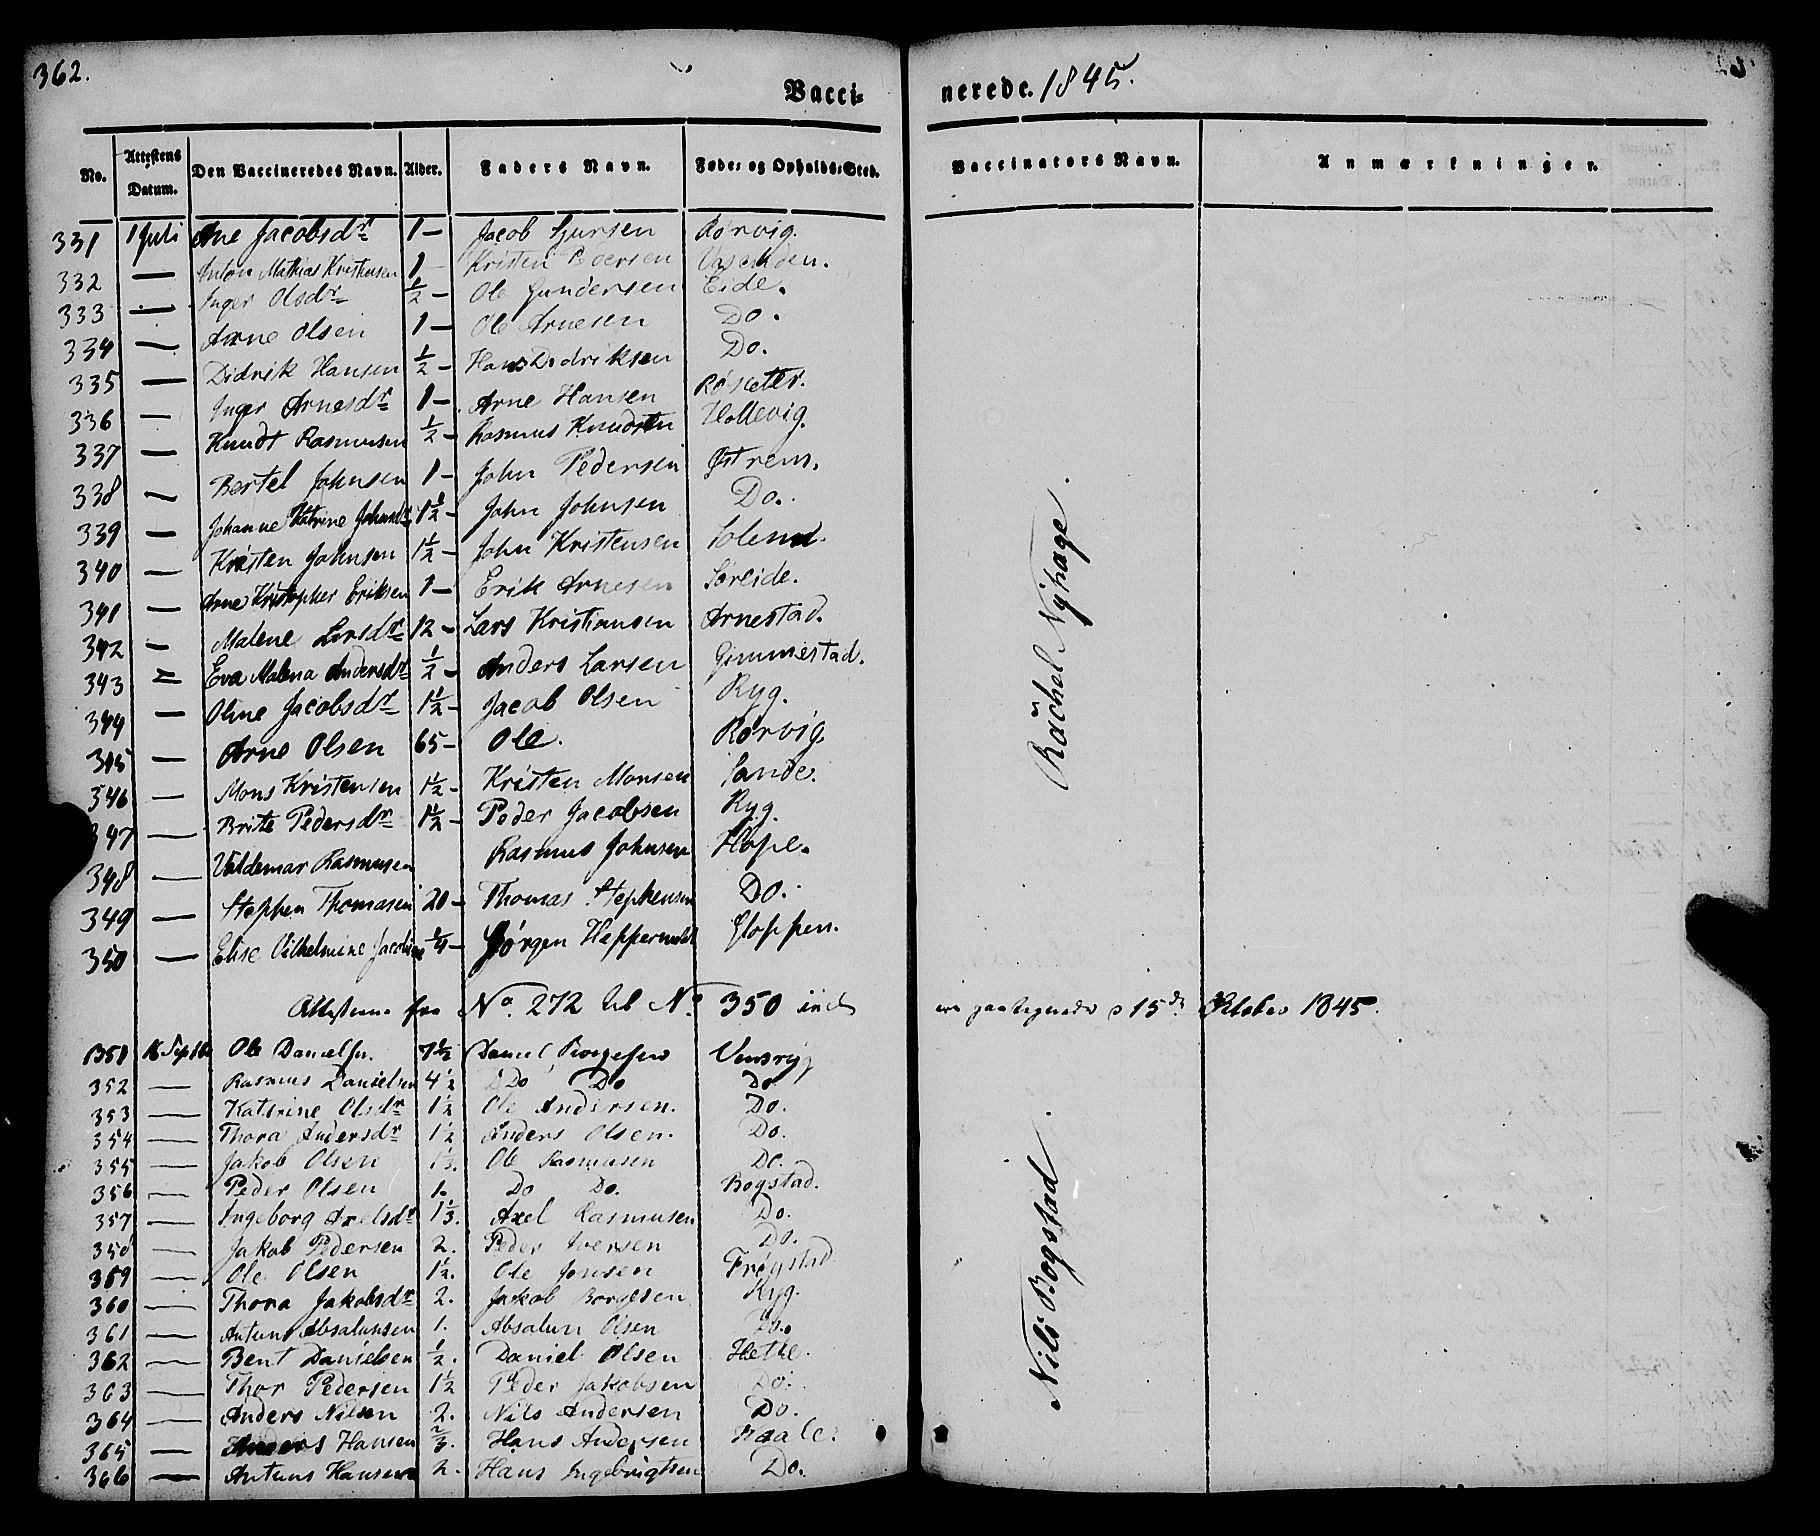 362.
Vacci- nerede. 1845.
No. Attestens Datum. Den Vaccineredes Navn. Alder. Faders Navn. Føde- og Opholds-Sted. Vaccinators Navn. Anmærkninger.
331 1 Juli Ane Jacobsdr 1 — Jacob Sjursen Rørvig.
332 — Anton Mathias Kristensen 1 — Kristen
333 — Inger Olsdr 1/2 — Ole Gundersen Eide.
334 — Arne Olsen 1 — Ole Arnesen Do.
335 — Didrik Hansen 1/2 — Hans Didriksen Do.
336 — Inger Arnesdr 1 — Arne Hansen Røseter.
337 — Knudt Rasmusen 1/2 — Rasmus Knudsen Hollevig.
338 — Bertel Johnsen 1 — John Pedersen Østrem.
339 — Johanne Katrine Johnsdr 1 1/2 — John Johnsen Do.
340 — Kristen Johnsen 1 1/2 — John Kristensen
341 — Arne Kristopher Eriksen 1 — Erik Arnesen Søreide.
342 — Malene Larsdr 12 — Lars Kristiansen Arnestad.
343 — Eva Malena Andersdr 1/2 — Anders Larsen Gimmestad.
344 — Oline Jacobsdr 1 1/2 — Jacob Olsen Ryg.
345 — Arne Olsen 65 — Ole. Rørvig
346 — Mons Kristensen 1 1/2 — Kristen Monsen Sande.
347 — Brite Pedersdr 1 1/2 — Peder Jacobsen Ryg.
348 — Valdemar Rasmusen Rasmus Johnsen Hope.
349 — Stephen Thomasen 20 — Thomas Stephensen Do.
350 — Elise Vilhelmine 1/4 — Jørgen Gloppen.
Rachel Nyhage.
Attesterne fra No. 272 til No. 350 incl. 15de Oktober 1845.
351 16 Septbr Ole Danielsen. 7 1/2 Daniel
352 — Rasmus Danielsen 4 1/2 Do Do Do
353 — Katrine Olsdr 1 1/2 Ole Andersen. Do.
354 — Thora Andersdr 1 1/2 Anders Olsen. Do.
355 — Jakob Olsen 1 1/3. Ole Rasmusen Do.
356 — Peder Olsen 1. Do Do. Bogstad.
357 — Ingeborg Axelsdr 1 1/3. Axel Rasmusen Do.
358 — Jakob Pedersen 2. Peder Iversen Do.
359 — Ole Olsen 1 1/2. Ole Jonsen Frøystad
360 — Thora Jakobsdr 2. Jakob Ryg.
361 — Antuns Absalunsen 1. Absalun Olsen Do.
362 — Bent Danielsen 1/2. Daniel Olsen Hetle.
363 — Thor Pedersen 1 1/2 Peder Jakobsen Do.
364 — Anders Nilsen 2. Nils Andersen Do.
365 — Anders Hansen 2/3. Hans Andersen
366 — Antuns Hansen 2. Hans Ingebrigtsen Do.
Nils Bogstad.